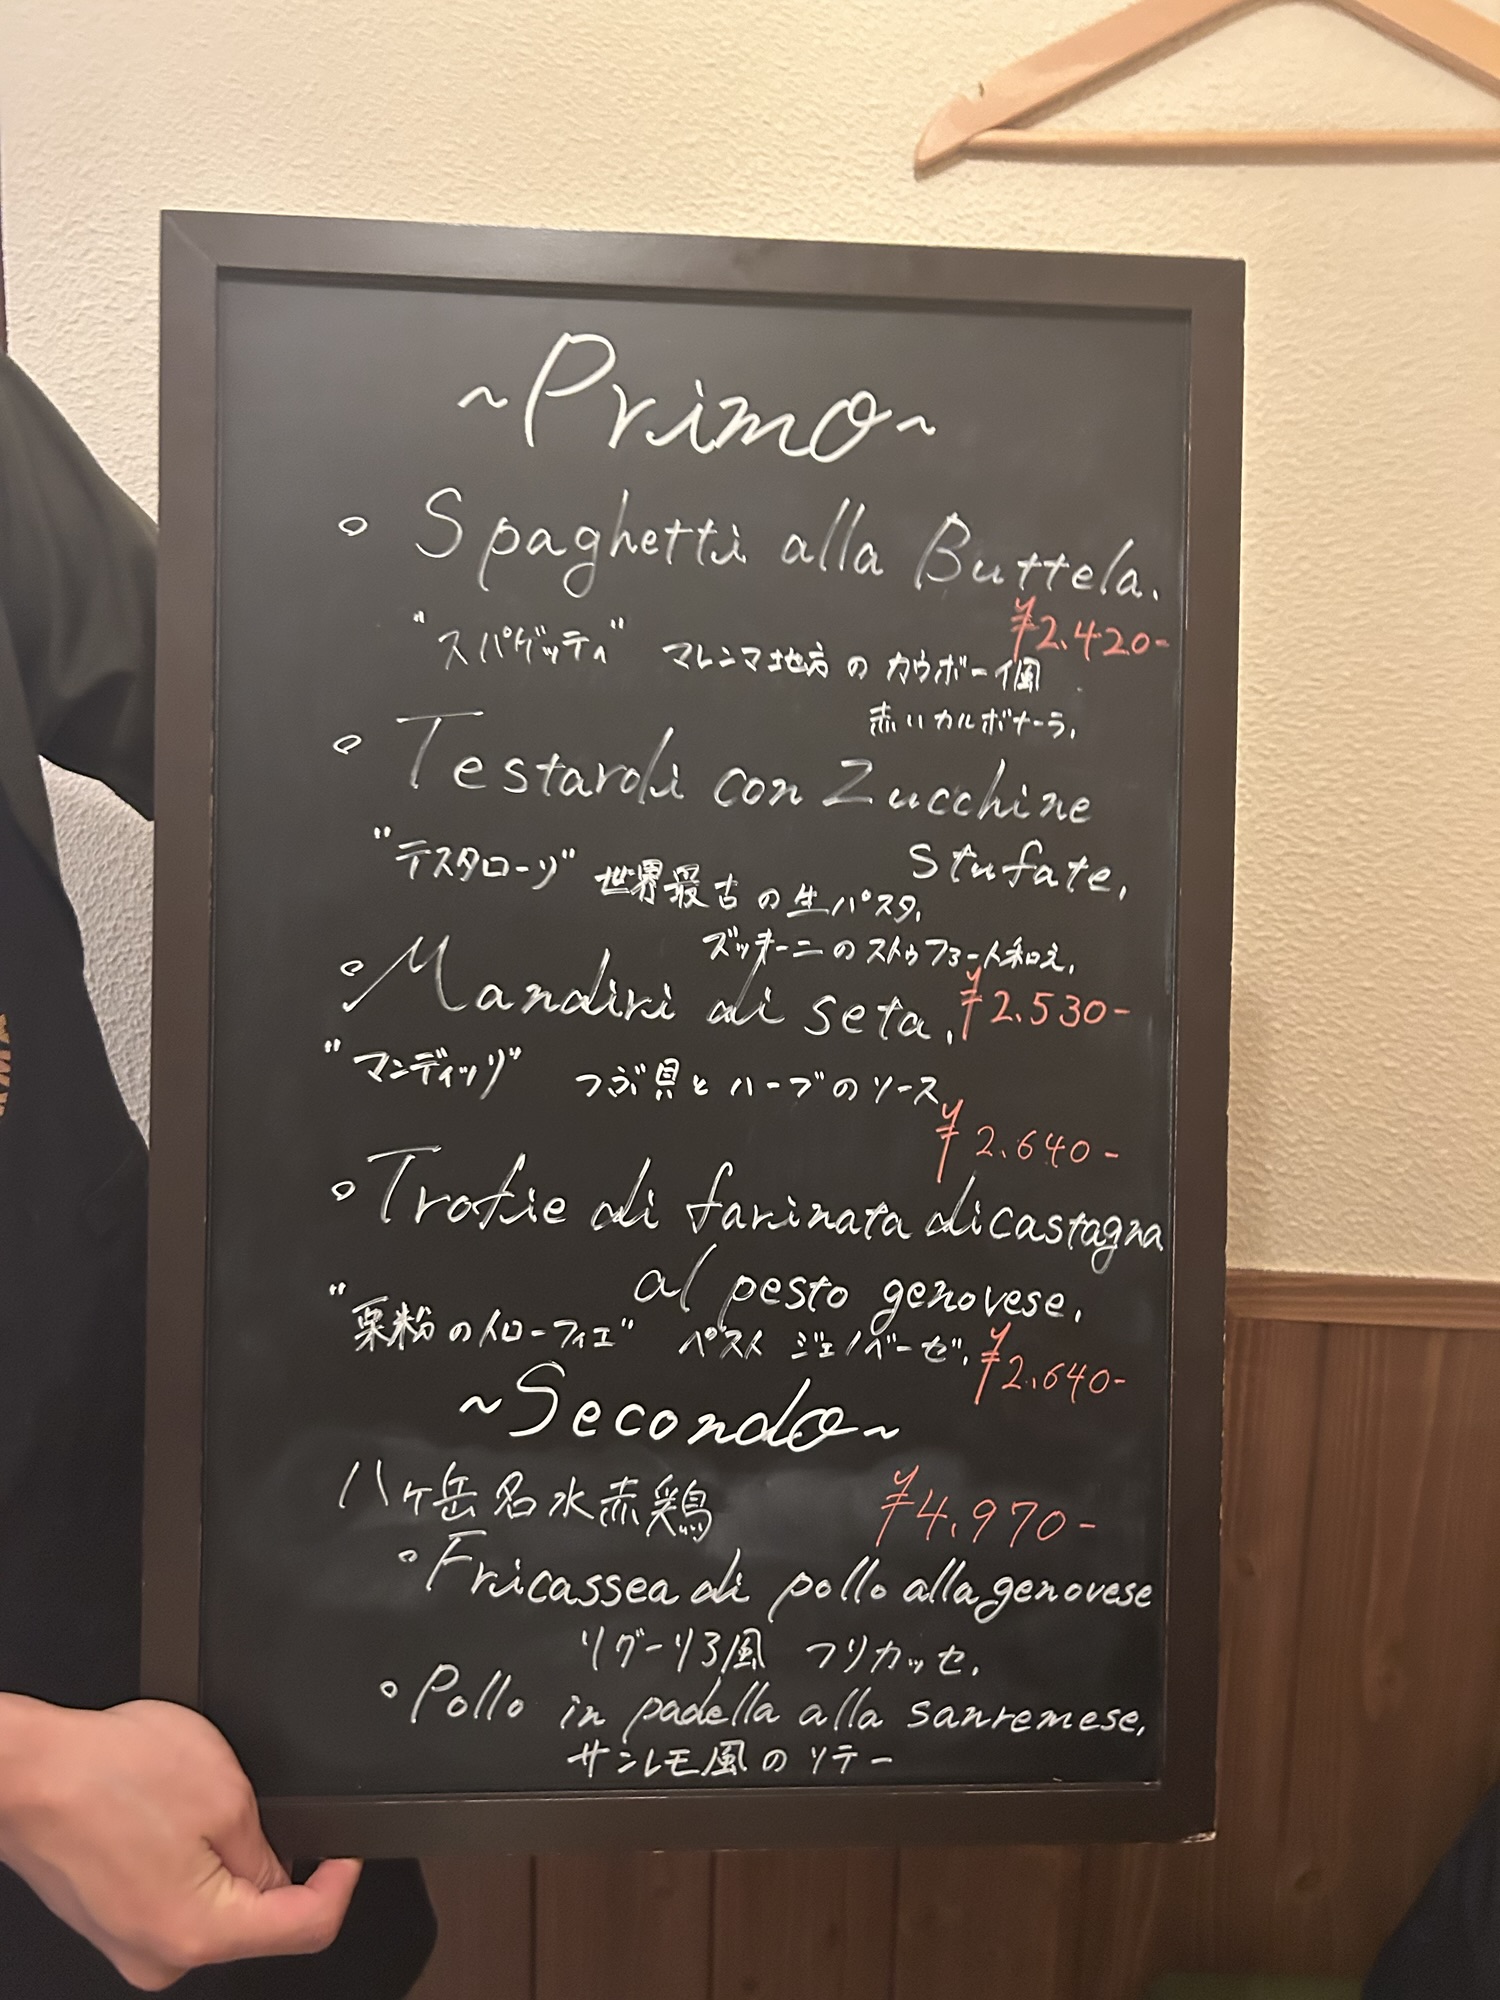 ~Primo~
○ Spaghetti alla Buttela.
¥2.420-
"スパゲッティ" マレンマ地方の カウボーイ風
赤いカルボナーラ.
○ Testaroli con Zucchine
Stufate.
"テスタローリ" 世界最古の生パスタ.
ズッキーニのストゥファート和え.
○ Mandiri di seta. ¥2.530-
"マンディッリ" つぶ貝とハーブのソース
¥2.640-
○ Trofie di farinata di castagna
al pesto genovese.
"栗粉のトローフィエ" ペスト ジェノベーゼ. ¥2.640-
~Secondo~
八ヶ岳名水赤鶏 ¥4.970-
○ Fricassea di pollo alla genovese
リグーリア風 フリカッセ.
○ Pollo in padella alla sanremese.
サンレモ風のソテー